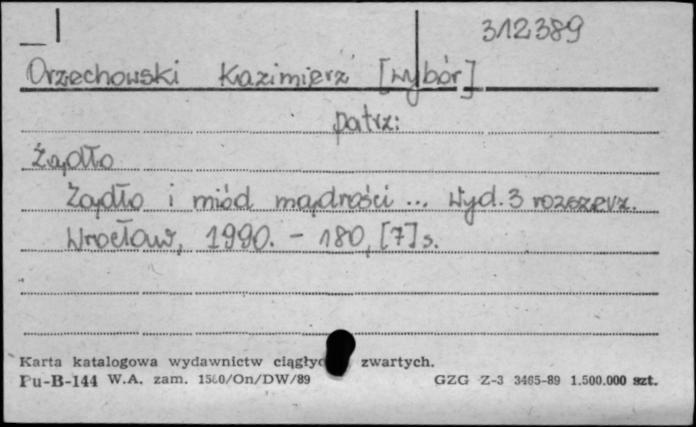 312389
Orzechowski Kazimierz [wybór]
patrz:
Żądło
Żądło i miód mądrości ... Wyd. 3 rozszerz.
Wrocław, 1990. - 180, [7] s.
Karta katalogowa wydawnictw zwartych.
Pu-B-144 W.A. zam. /On/DW/89 GZG Z-3 3465-89 1.500.000 szt.